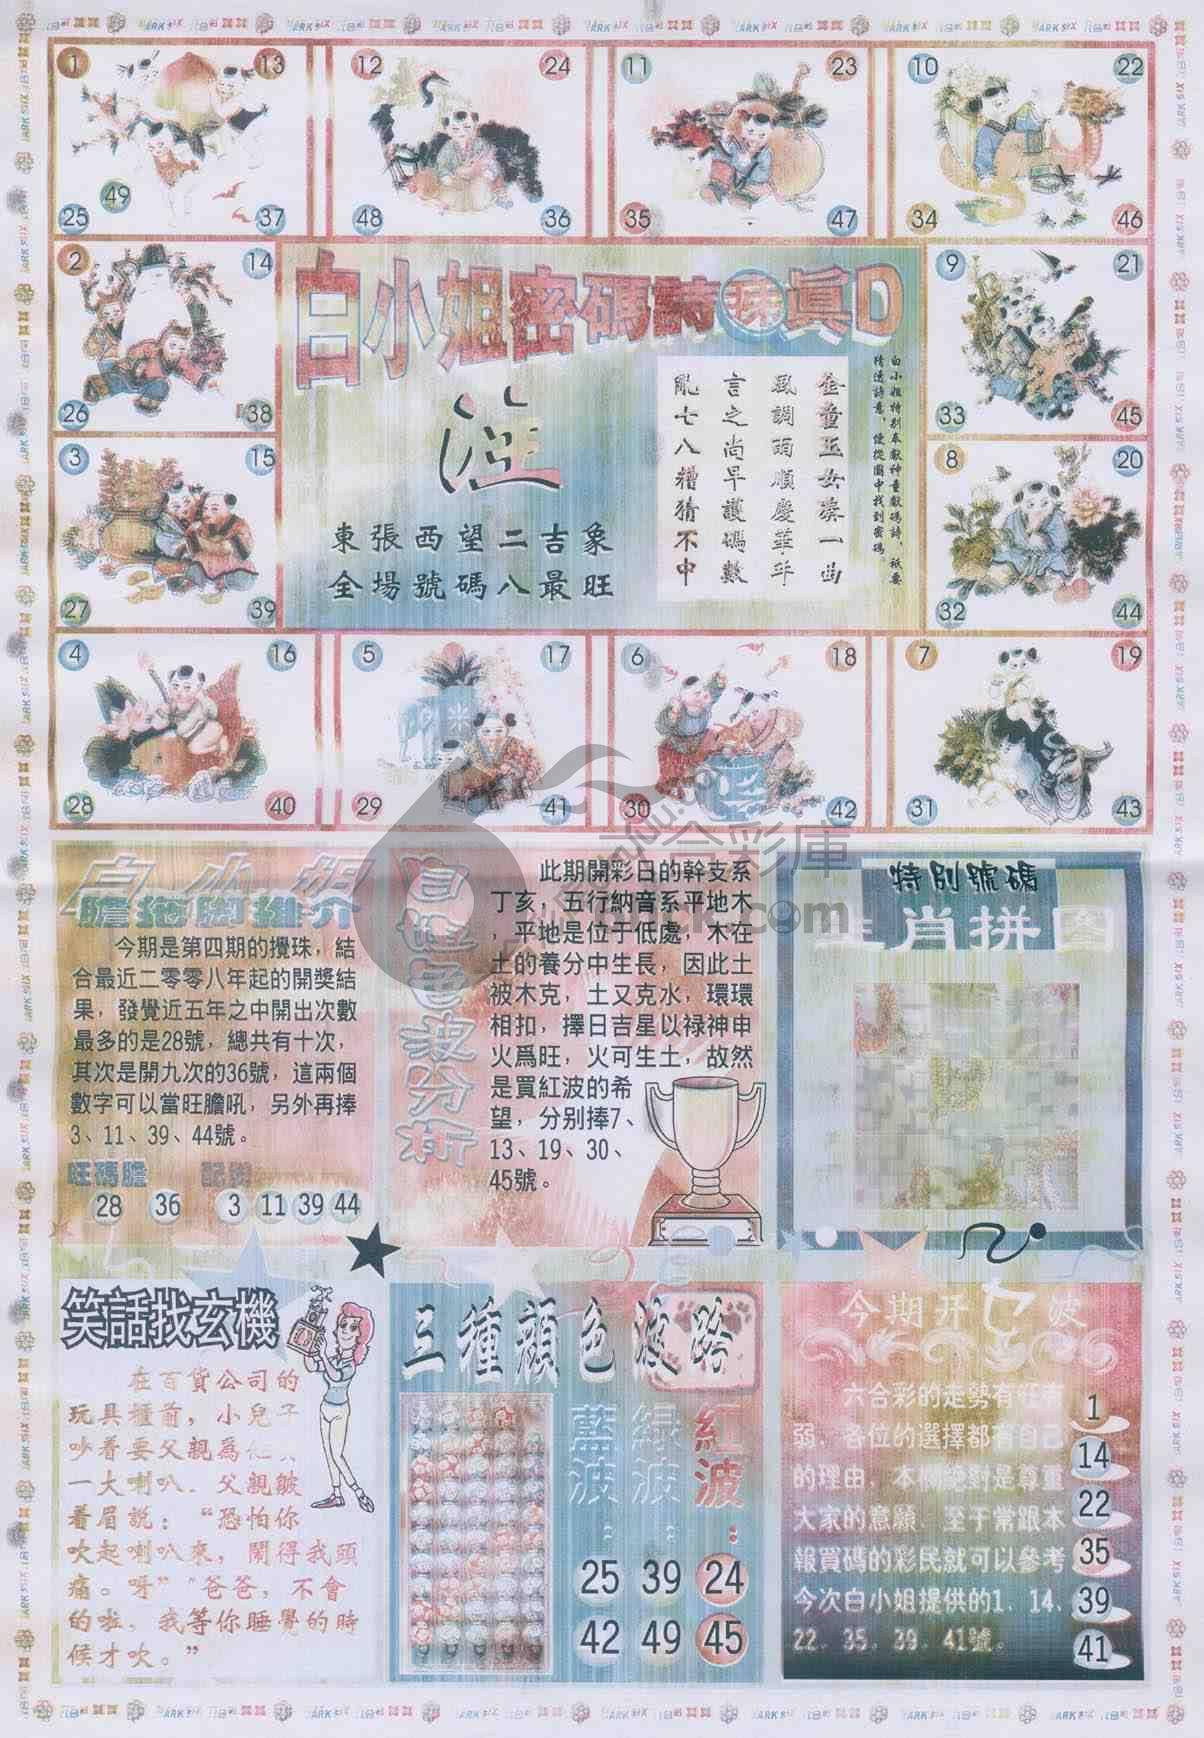 1 13 12 24 11 23 10 22
49
25 37 48 36 35 47 34 46
2 14
26 38
3 15
27 39
白小姐密碼詩 真D
東張西望二吉象
全場號碼八最旺
金童玉女湊一曲
風調雨順慶華年
言之尚早護碼數
亂七八糟猜不中
白小姐特別奉獻神童數碼詩，祇要
猜透詩意，便從圖中找到密碼。
9 21
33 45
8 20
32 44
4 16 5 17 6 18 7 19
28 40 29 41 30 42 31 43
白小姐
膽拖腳推介
今期是第四期的攪珠，結
合最近二零零八年起的開獎結
果，發覺近五年之中開出次數
最多的是28號，總共有十次，
其次是開九次的36號，這兩個
數字可以當旺膽吼，另外再捧
3、11、39、44號。
旺碼膽 配腳
28 36 3 11 39 44
白姐色波分析
此期開彩日的幹支系
丁亥，五行納音系平地木
，平地是位于低處，木在
土的養分中生長，因此土
被木克，土又克水，環環
相扣，擇日吉星以禄神申
火爲旺，火可生土，故然
是買紅波的希
望，分别捧7、
13、19、30、
45號。
特別號碼
生肖拼图
笑話找玄機
在百貨公司的
玩具櫃前，小兒子
吵着要父親爲他買
一大喇叭．父親皺
着眉說：“恐怕你
吹起喇叭來，鬧得我頭
痛。呀”“爸爸，不會
的啦，我等你睡覺的時
候才吹。”
三種顏色波路
藍波： 綠波： 紅波：
25 39 24
42 49 45
今期开 波
六合彩的走勢有旺有
弱．各位的選擇都有自己
的理由．本欄絕對是尊重
大家的意願．至于常跟本
報買碼的彩民就可以參考
今次白小姐提供的1．14．
22．35．39．41號。
1
14
22
35
39
41
六合彩庫